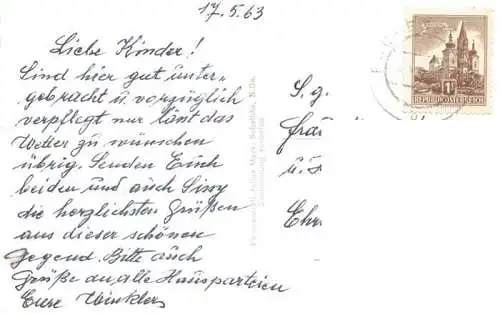 17.5.63
Liebe Kinder!
Sind hier gut unter-
gebracht u. vorzüglich
verpflegt nur läßt das
Wetter zu wünschen
übrig. Senden Euch
beiden und auch Sissy
die herzlichsten Grüßen
aus dieser schönen
Gegend. Bitte auch
Grüße an alle Hausparteien
Eure Winklers
S. g.
Frau
u.
Ehr
1S
REPUBLIK ÖSTERREICH